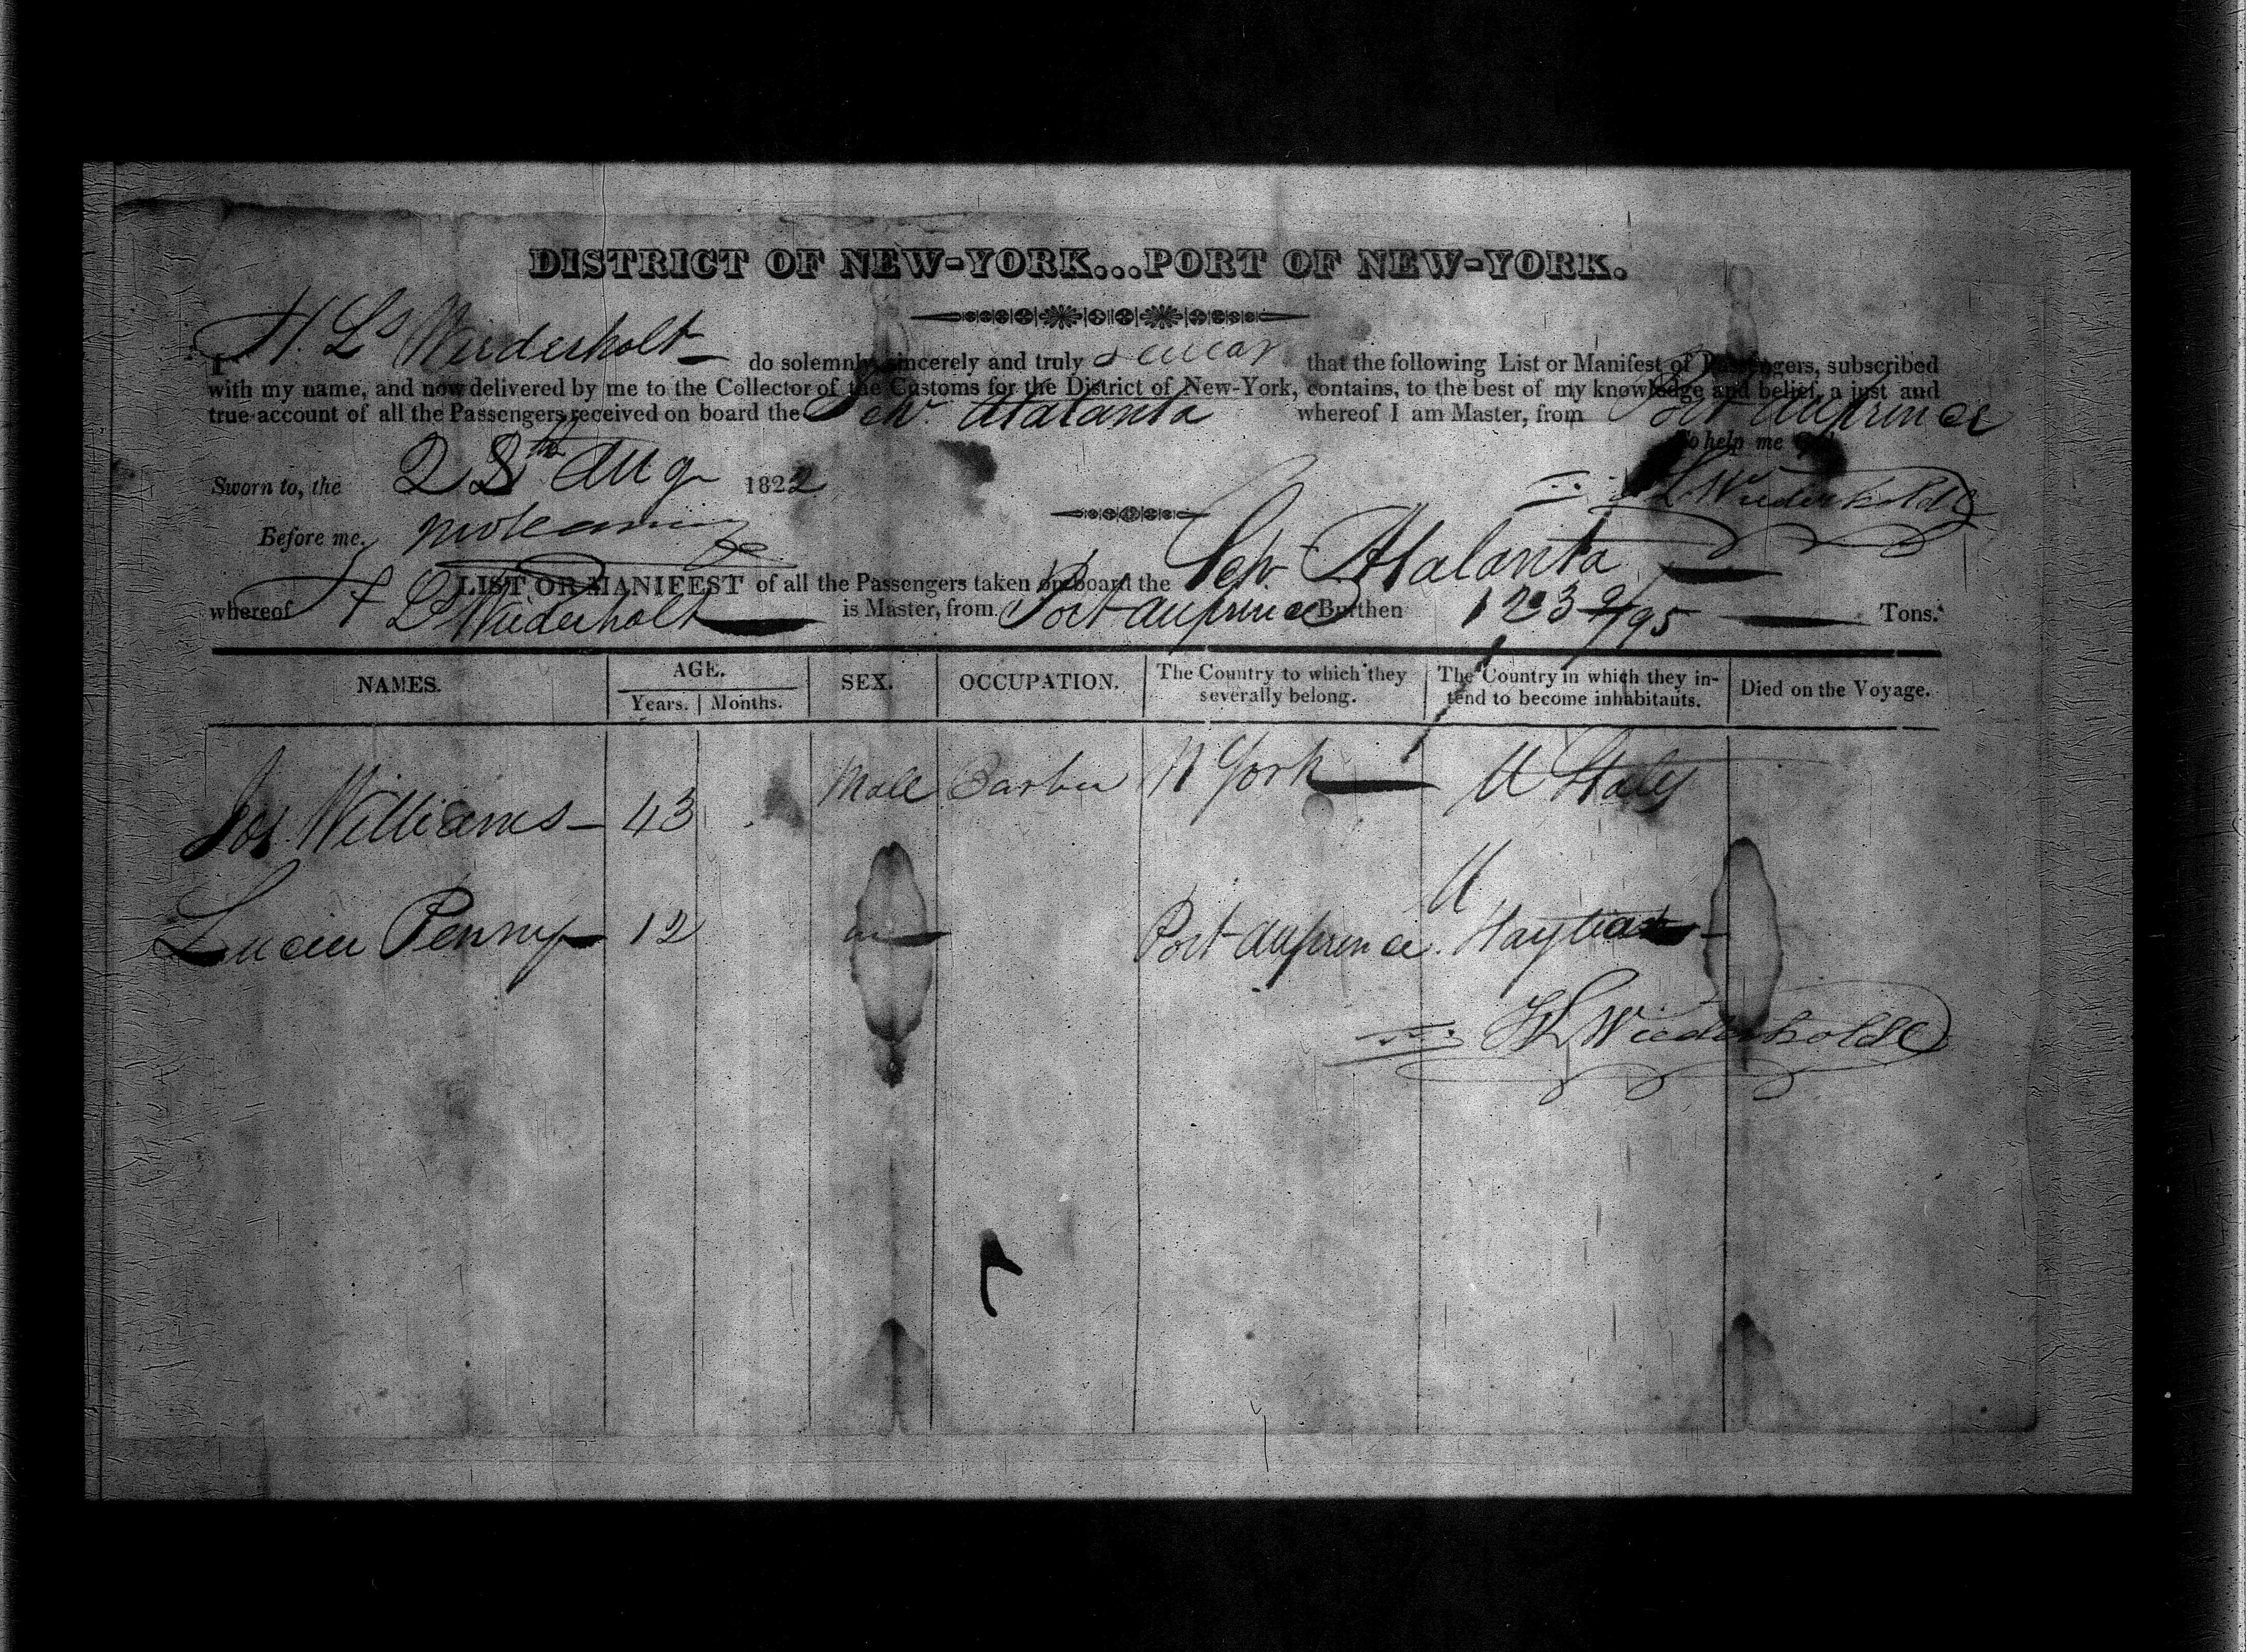 DISTRICT OF NEW-YORK...PORT OF NEW-YORK.
I H. Ls Wiederholt do solemnly, sincerely and truly swear that the following List or Manifest of Passengers, subscribed
with my name, and now delivered by me to the Collector of the Customs for the District of New-York, contains, to the best of my knowledge and belief, a just and
true account of all the Passengers received on board the Schr Atalanta whereof I am Master, from Port auprince
So help me God.
Sworn to, the 28th Aug 1822 L Wiederholdt
Before me,
LIST OR MANIFEST of all the Passengers taken on board the Schr Atalanta
whereof H Ls Wiederholt is Master, from Port auprince Burthen 123 9/95 Tons.
NAMES. AGE. SEX. OCCUPATION. The Country to which they severally belong. The Country in which they intend to become inhabitants. Died on the Voyage.
Years. Months.
Jos Williams 43 Male Barber N York U States
Lucien Penny 12 m Port auprince. U Haytian
HL Wiederholdt